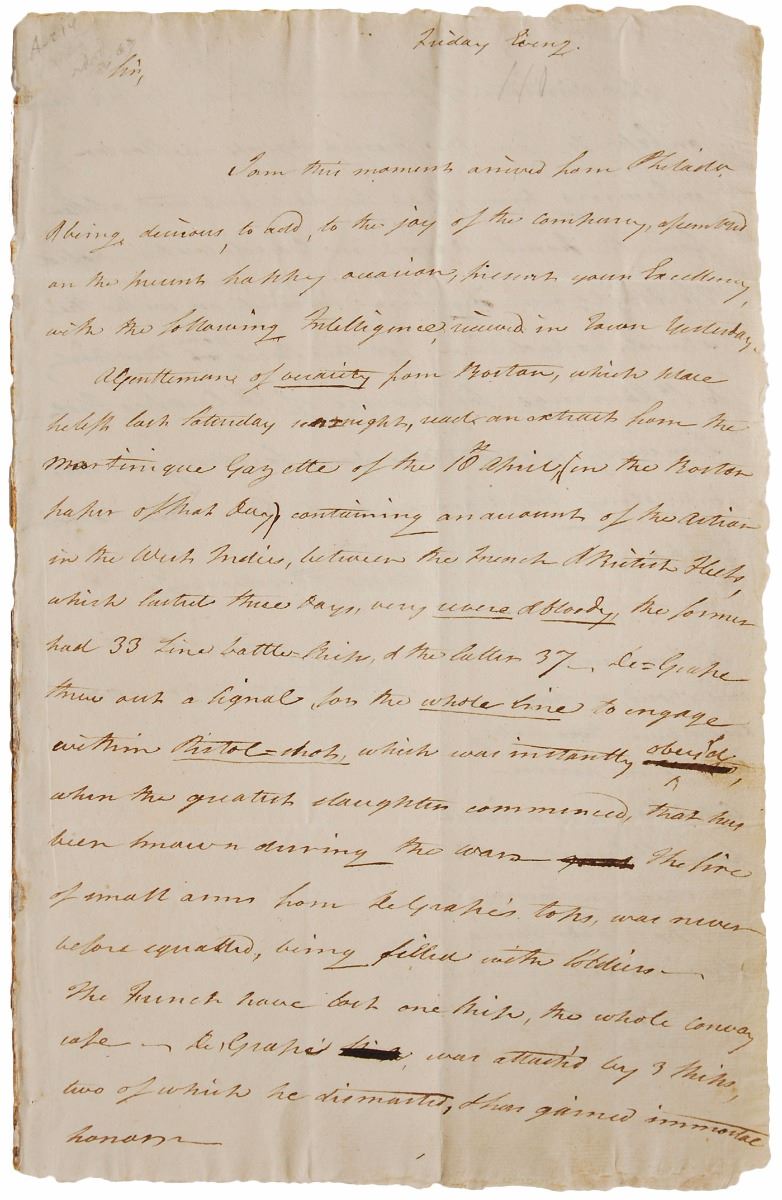 Friday Eveng.
Sir,
I am this moment arrived from Philada.
& being, desirous, to add, to the joy of the company, assembled
on the present happy occasion, present your Excellency,
with the following Intelligence, received in Town Yesterday.
A Gentleman, of veracity from Boston, which place
he left last Saturday sennight, read an extract from the
Martinique Gazette of the 18th April (in the Boston
paper of that day) containing an account of the Action
in the West Indies, between the French & British Fleets,
which lasted three Days, very severe & bloody, the former
had 33 Line battle=Ships, & the latter 37 — De=Grasse
threw out a Signal, for the whole Line to engage
within Pistol=shot, which was instantly obey'd,
when the greatest slaughter commenced, that has
been known during the war — The fire
of small arms from De Grasse's tops, was never
before equalled, being filled with Soldiers —
The French have lost one Ship, the whole convoy
safe — De Grasse was attack'd by 3 Ships,
two of which he dismasted, & has gained immortal
honor —